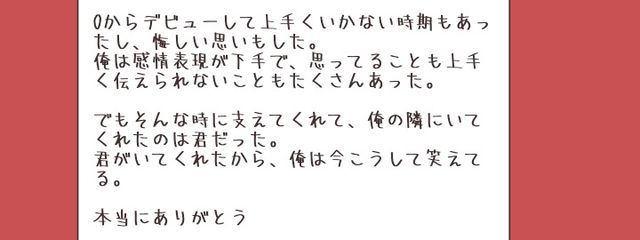 0からデビューして上手くいかない時期もあっ
たし、悔しい思いもした。
俺は感情表現が下手で、思ってることも上手
く伝えられないこともたくさんあった。
でもそんな時に支えてくれて、俺の隣にいて
くれたのは君だった。
君がいてくれたから、俺は今こうして笑えて
る。
本当にありがとう